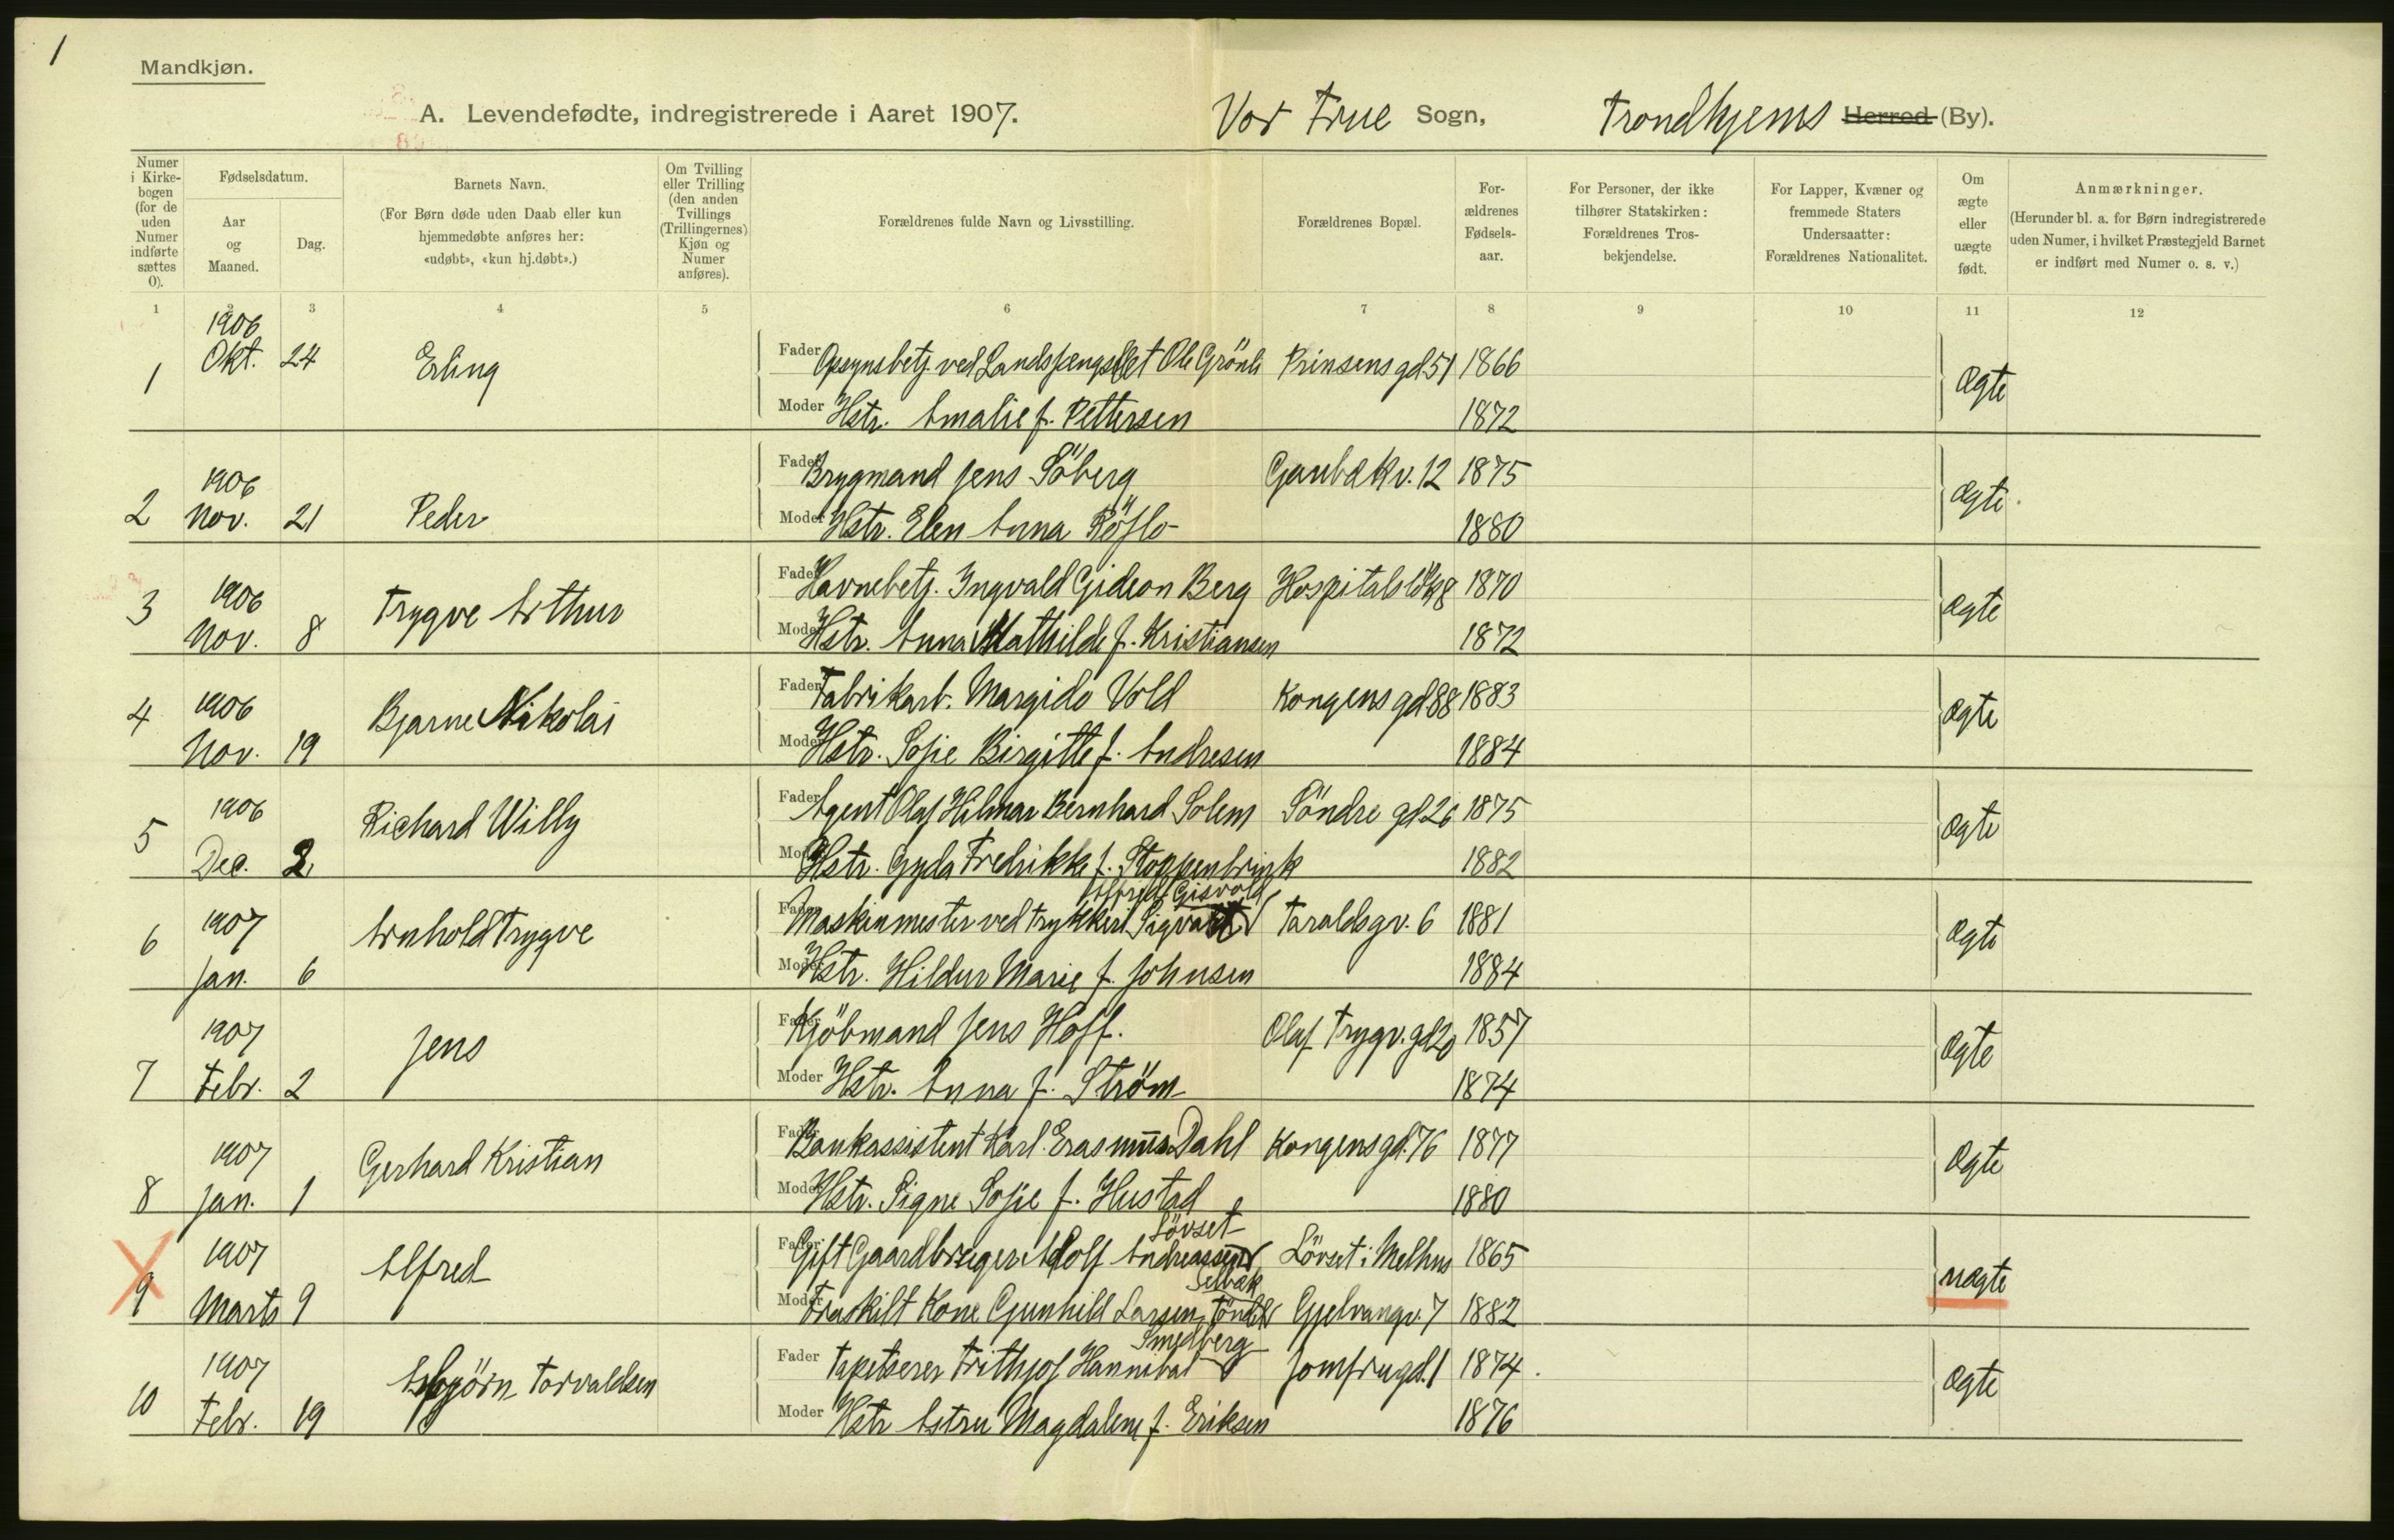 1
Mandkjøn.
A. Levendefødte, indregistrerede i Aaret 1907. Vor Frue Sogn, Trondhjems Herred (By).
Numer i Kirkebogen (for de uden Numer indførte sættes 0).
Fødselsdatum.
Aar og Maaned.
Dag.
Barnets Navn.
(For Børn døde uden Daab eller kun hjemmedøbte anføres her: «udøbt», «kun hj.døbt».)
Om Tvilling eller Trilling (den anden Tvillings (Trillingernes) Kjøn og Numer anføres).
Forældrenes fulde Navn og Livsstilling.
Forældrenes Bopæl.
Forældrenes Fødselsaar.
For Personer, der ikke tilhører Statskirken: Forældrenes Trosbekjendelse.
For Lapper, Kvæner og fremmede Staters Undersaatter: Forældrenes Nationalitet.
Om ægte eller uægte født.
Anmærkninger.
(Herunder bl. a. for Børn indregistrerede uden Numer, i hvilket Præstegjeld Barnet er indført med Numer o. s. v.)
1 2 3 4 5 6 7 8 9 10 11 12
1 1906 Okt. 24 Erling Fader Opsynsbetj. ved Landsfængslet Ole Grönli Prinsens gd 51 1866 Ægte
Moder Hstr. Amalie f. Pettersen 1872
2 1906 Nov. 21 Peder Fader Brygmand Jens Söberg Gaubækv. 12 1875 Ægte
Moder Hstr. Elen Anna Röflo 1880
3 1906 Nov. 8 Trygve Arthur Fader Havnebetj. Ingvald Gideon Berg Hospitalsløk 8 1870 Ægte
Moder Hstr. Anna Mathilde f. Kristiansen 1872
4 1906 Nov. 19 Bjarne Nikolai Fader Fabrikarb. Margido Vold Kongens gd 88 1883 Ægte
Moder Hstr. Sofie Birgitte f. Andresen 1884
5 1906 Dec. 2 Richard Willy Fader Agent Olaf Hilmar Bernhard Solem Söndre gd 26 1875 Ægte
Moder Hstr. Gyda Fredrikke f. Stoppenbrink 1882
Alfred Gisvold
6 1907 Jan. 6 Arnhold Trygve Fader Maskinmester ved trykkeri Sigvart Taraldsgv. 6 1881 Ægte
Moder Hstr. Hildur Marie f. Johnsen 1884
7 1907 Febr. 2 Jens Fader Kjöbmand Jens Hoff. Olaf Trygv. gd 20 1857 Ægte
Moder Hstr. Anna f. Ström 1874
8 1907 Jan. 1 Gerhard Kristian Fader Bankassistent Karl Erasmus Dahl Kongens gd. 76 1877 Ægte
Moder Hstr. Signe Sofie f. Hustad 1880
Lövset
9 1907 Marts 9 Alfred Fader Gift Gaardbruger Adolf Andreassen Lövset i Melhus 1865 uægte
Selbæk
Moder Fraskilt Kone Gunhild Larsen Gjelvangv. 7 1882
Smedberg
10 1907 Febr. 19 Asbjörn Torvaldsen Fader Tapetserer Frithjof Hannibal Jomfrugd. 1 1874 Ægte
Moder Hstr Astru Magdalene f. Eriksen 1876